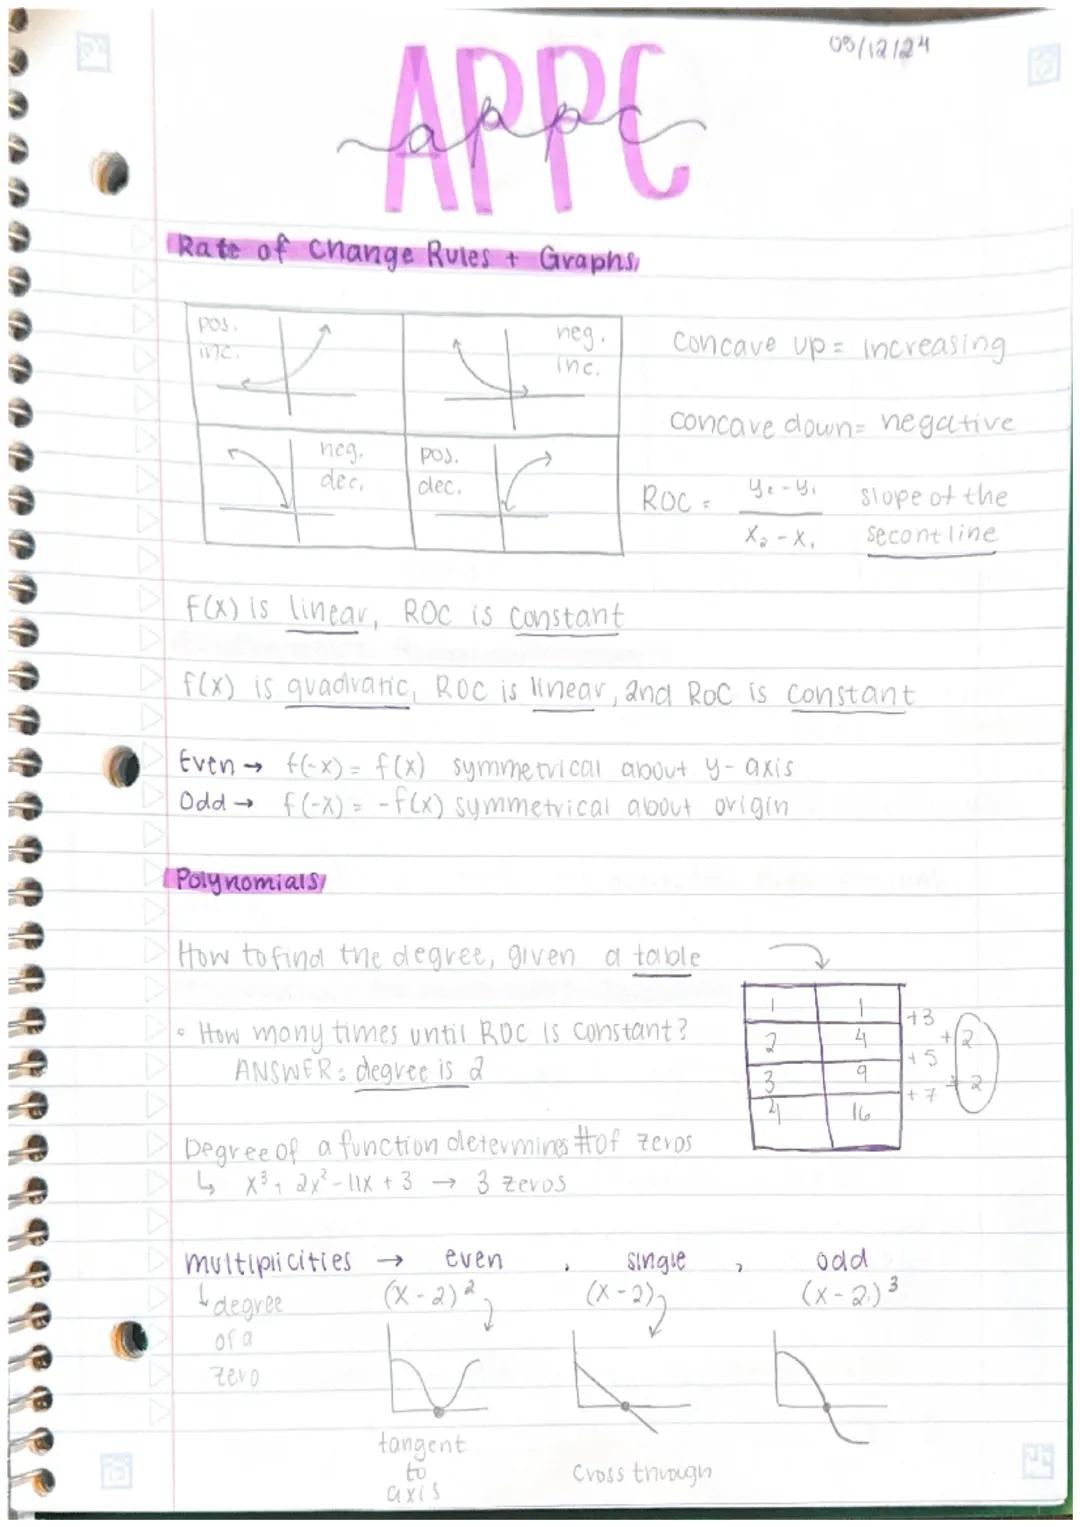 05/12/24
APPC
appc
Rate of Change Rules + Graphs
pos.
inc.
neg.
inc.
neg.
dec.
pos.
dec.
Concave up = increasing
concave down = negative
ROC = y₂-y₁ / x₂-x₁ slope of the secont line
f(x) is linear, ROC is constant
f(x) is quadratic, ROC is linear, 2nd ROC is constant
Even → f(-x) = f(x) symmetrical about y-axis
Odd → f(-x) = -f(x) symmetrical about origin
Polynomials
How to find the degree, given a table
• How many times until ROC is constant?
ANSWER: degree is 2
1 1
2 4
3 9
4 16
+3
+5
+7
+2
+2
Degree of a function determines # of zeros
↳ x³ + 2x² - 11x + 3 → 3 zeros
multiplicities → even , single , odd
↳ degree of a zero
(x-2)² (x-2) (x-2)³
tangent
to
axis
cross through